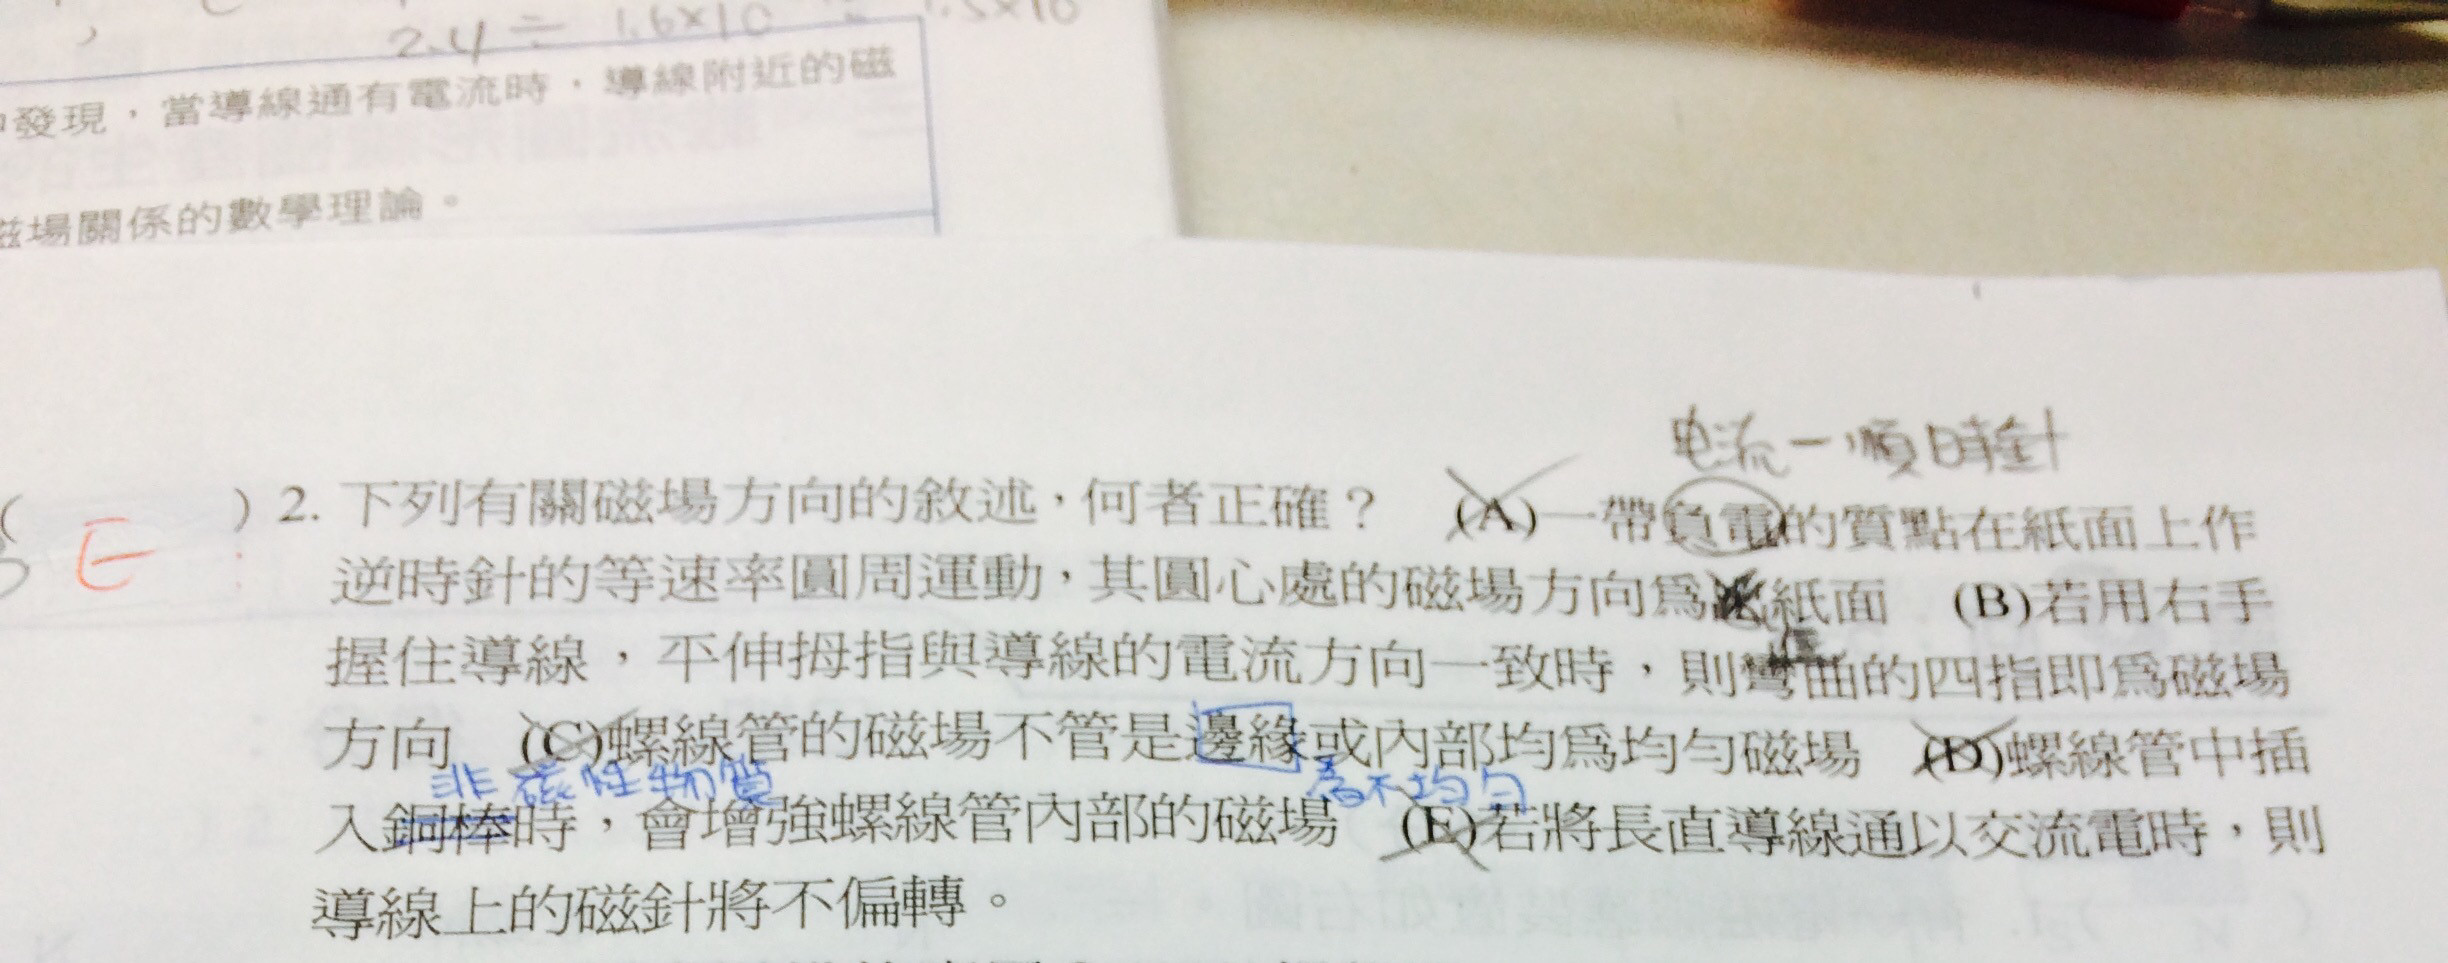 2.4 ÷ 1.6×10 1.5×10
發現，當導線通有電流時，導線附近的磁
磁場關係的數學理論。
电流－順時針
( E ) 2. 下列有關磁場方向的敘述，何者正確？ (A)一帶負電的質點在紙面上作
逆時針的等速率圓周運動，其圓心處的磁場方向爲紙面 (B)若用右手
握住導線，平伸拇指與導線的電流方向一致時，則彎曲的四指即爲磁場
方向 (C)螺線管的磁場不管是邊緣或內部均爲均勻磁場 (D)螺線管中插
非磁性物質 為不均勻
入銅棒時，會增強螺線管內部的磁場 (E)若將長直導線通以交流電時，則
導線上的磁針將不偏轉。